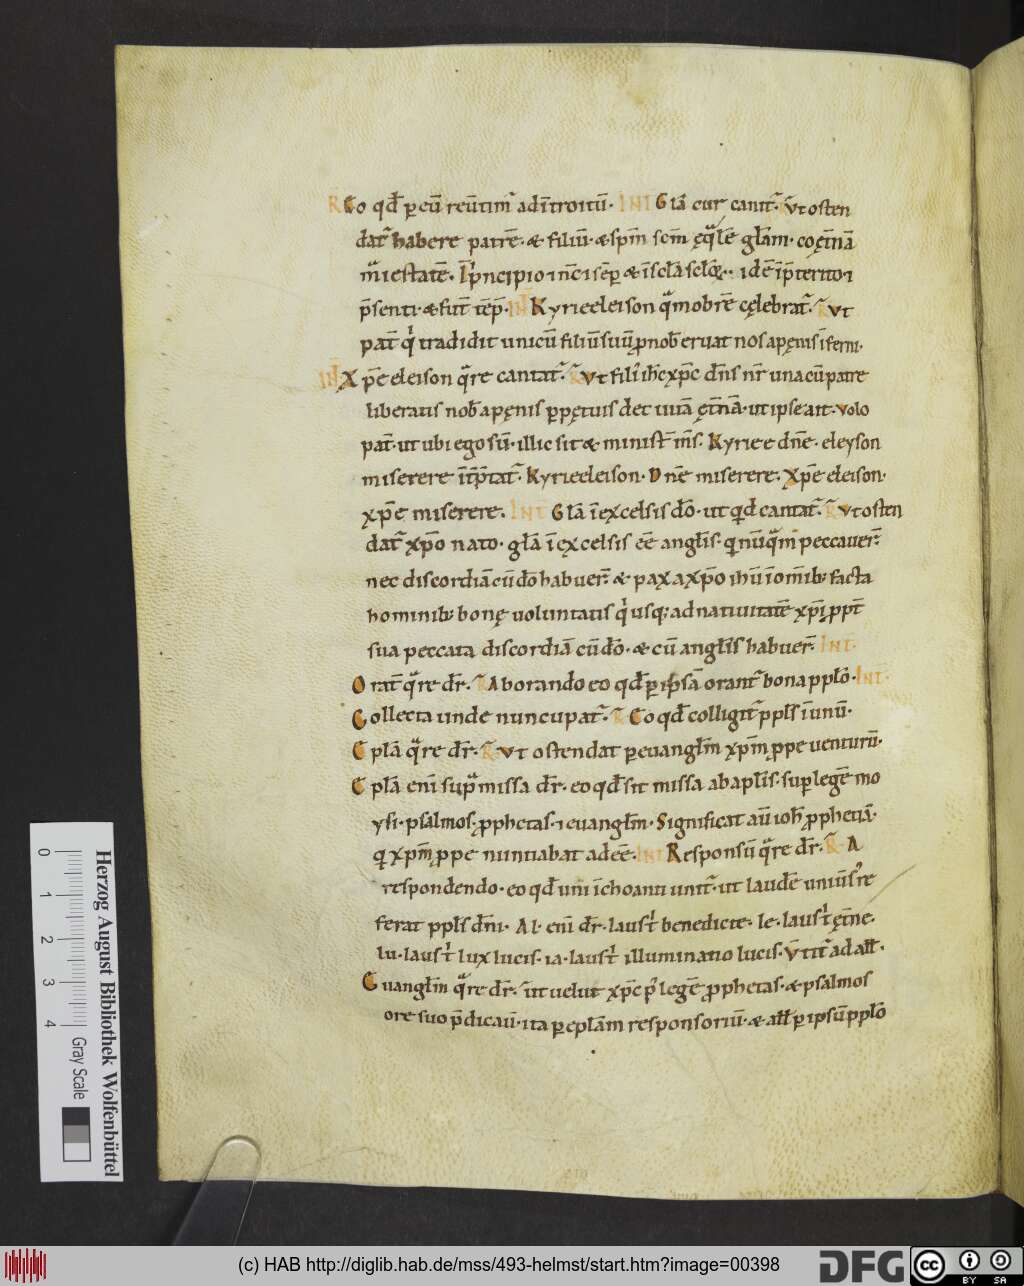 R Co qđ p eū reūtim᷑ ad ītroitū. INT Glā cur canit᷑. R Vt osten
dat᷑ habere patrē. & filiū. & spm̄ scm̄ ęq̄lē glām. coęt̄nā
maiestatē. In principio ⁊ nc̄ ⁊ semp & in scla sclōꝝ. idē in p̄terito ⁊
p̄senti. & fut̄ tēp. INT Kyrieeleison q̄mobrē cęlebrat᷑. R Vt
pat̄ qi tradidit unicū filiū suū p nob̄ eruat nos a pęnis īferni.
INT Xp̄e eleison q̄re cantat᷑. R Vt fili ih̄c xp̄c dn̄s nr̄ una cū patre
liberatis nob̄ a pęnis ppętuis det uitā ęt̄nā. ut ipse ait. Volo
pat̄. ut ubi ego sū. illic sit & minist̄ ms̄. Kyrie e dn̄e. eleyson
miserere īt̄p̄tat᷑. Kyrieeleison. Dn̄e miserere. Xp̄e eleison.
xp̄e miserere. INT Glā ī excelsis dō. ut qd cantat᷑. R Vt osten
dat᷑ xp̄o nato. glā ī excelsis eē anglīs. qi nūq̄m peccauer̄.
nec discordiā cū dō habuer̄. & pax a xp̄o ihū ī omīb; facta
hominib; bonę uoluntatis qi usq; ad natiuitatē xp̄i ppt̄
sua peccata discordiā cū dō. & cū anglīs habuer̄. INT
Orat̄ q̄re dr̄. R Ab orando eo qđ p ipsā orant᷑ bona pplō. INT
Collecta unde nuncupat᷑. R Co qđ colligit᷑ ppls̄ ī unū.
Cplā q̄re dr̄. R Vt ostendat p euanglm̄ xpm̄ ppe uenturū.
Cplā enī sup̄ missa dr̄. eo qđ sit missa ab aplīs. sup legē mo
ysi. psalmos. pphetas. ⁊ euanglm̄. Significat aū ioh̄ pphetiā.
qi xpm̄ ppe nuntiabat adeē. INT Responsū q̄re dr̄. R A
respondendo. eo qđ uni īchoanti unit᷑. ut laudē uniūs re
ferat ppls̄ dn̄i. Al. enī dr̄. laus t̄ benedicte. le. laus t̄ ęt̄ne.
lu. laus t̄ lux lucis. ia. laus t̄ illuminatio lucis. V̄tit᷑ ad all̄.
Euanglm̄ q̄re dr̄. R ut uelut xp̄c pi legē pphetas. & psalmos
ore suo p̄dicaū. ita p eplām responsoriū. & all̄ p ipsū pplō
Herzog August Bibliothek Wolfenbüttel
0 1 2 3 4 Gray Scale
(c) HAB http://diglib.hab.de/mss/493-helmst/start.htm?image=00398
DFG cc BY SA